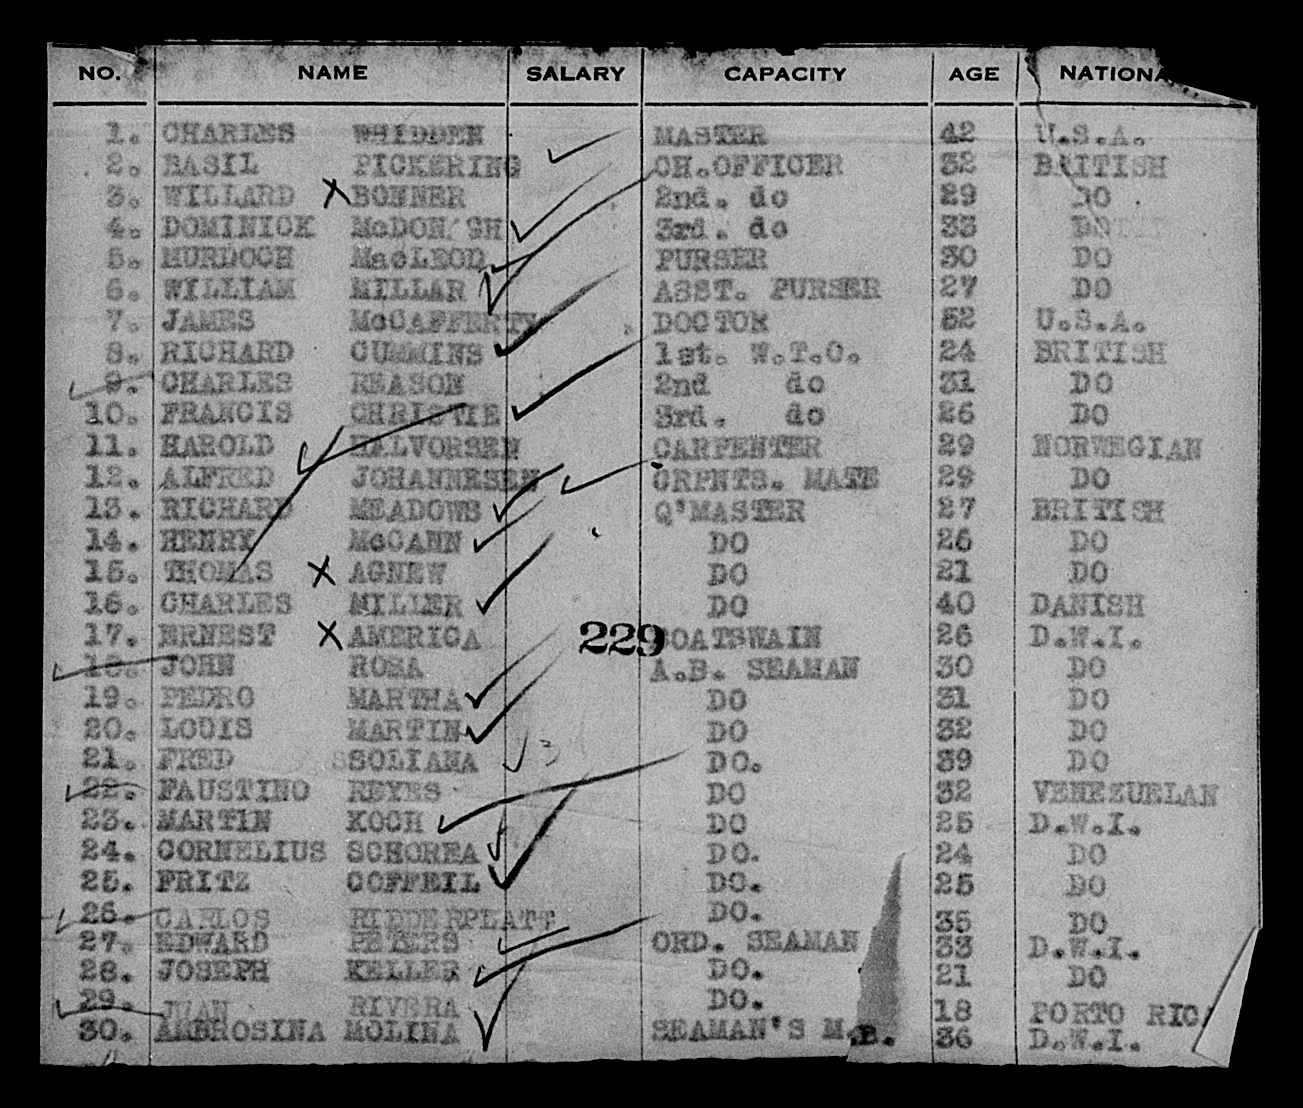 NO. NAME SALARY CAPACITY AGE NATIONA
1. CHARLES WHIDDEN MASTER 42 U.S.A.
2. BASIL PICKERING CH.OFFICER 32 BRITISH
3. WILLARD X BONNER 2nd. do 29 DO
4. DOMINICK McDON'GH 3rd. do 33 DO
5. MURDOCH MacLEOD PURSER 30 DO
6. WILLIAM MILLAR ASST. PURSER 27 DO
7. JAMES McCAFFERTY DOCTOR 52 U.S.A.
8. RICHARD CUMMINS 1st. W.T.O. 24 BRITISH
9. CHARLES REASON 2nd do 31 DO
10. FRANCIS CHRISTIE 3rd. do 26 DO
11. HAROLD HALVORSEN CARPENTER 29 NORWEGIAN
12. ALFRED JOHANNESEN CRPNTS. MATE 29 DO
13. RICHARD MEADOWS Q'MASTER 27 BRITISH
14. HENRY McCANN DO 26 DO
15. THOMAS X AGNEW DO 21 DO
16. CHARLES MILLER DO 40 DANISH
17. ERNEST X AMERICA 229 BOATSWAIN 26 D.W.I.
18. JOHN ROSA A.B. SEAMAN 30 DO
19. PEDRO MARTHA DO 31 DO
20. LOUIS MARTIN DO 32 DO
21. FRED SOLIANA DO. 39 DO
22. FAUSTINO REYES DO 32 VENEZUELAN
23. MARTIN KOCH DO 25 D.W.I.
24. CORNELIUS SCHOREA DO. 24 DO
25. FRITZ COFFEIL DO. 25 DO
26. CARLOS RIDDERPLATT DO. 35 DO
27. EDWARD PETERS ORD. SEAMAN 33 D.W.I.
28. JOSEPH KELLER DO. 21 DO
29. JUAN RIVERA DO. 18 PORTO RICA
30. AMBROSINA MOLINA SEAMAN'S M.B. 36 D.W.I.